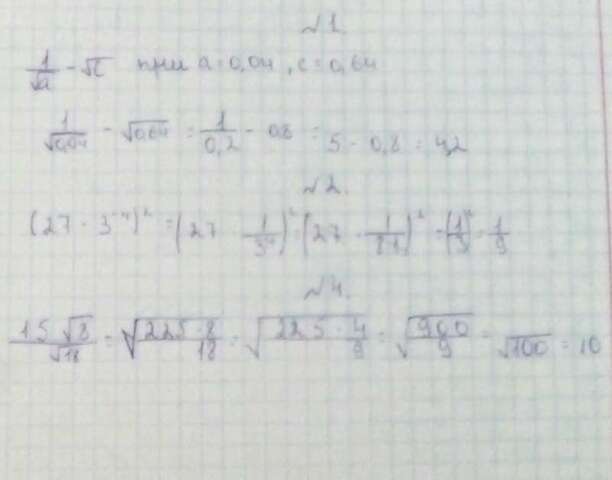 №1.
1/√a - √c при a=0,04, c=0,64
1/√0,04 - √0,64 = 1/0,2 - 0,8 = 5 - 0,8 = 4,2
№2.
(27 · 3⁻⁴)² = (27 · 1/3⁴)² = (27 · 1/81)² = (1/3)² = 1/9
№4.
15√8/√18 = √225·8/18 = √225·4/9 = √900/9 = √100 = 10